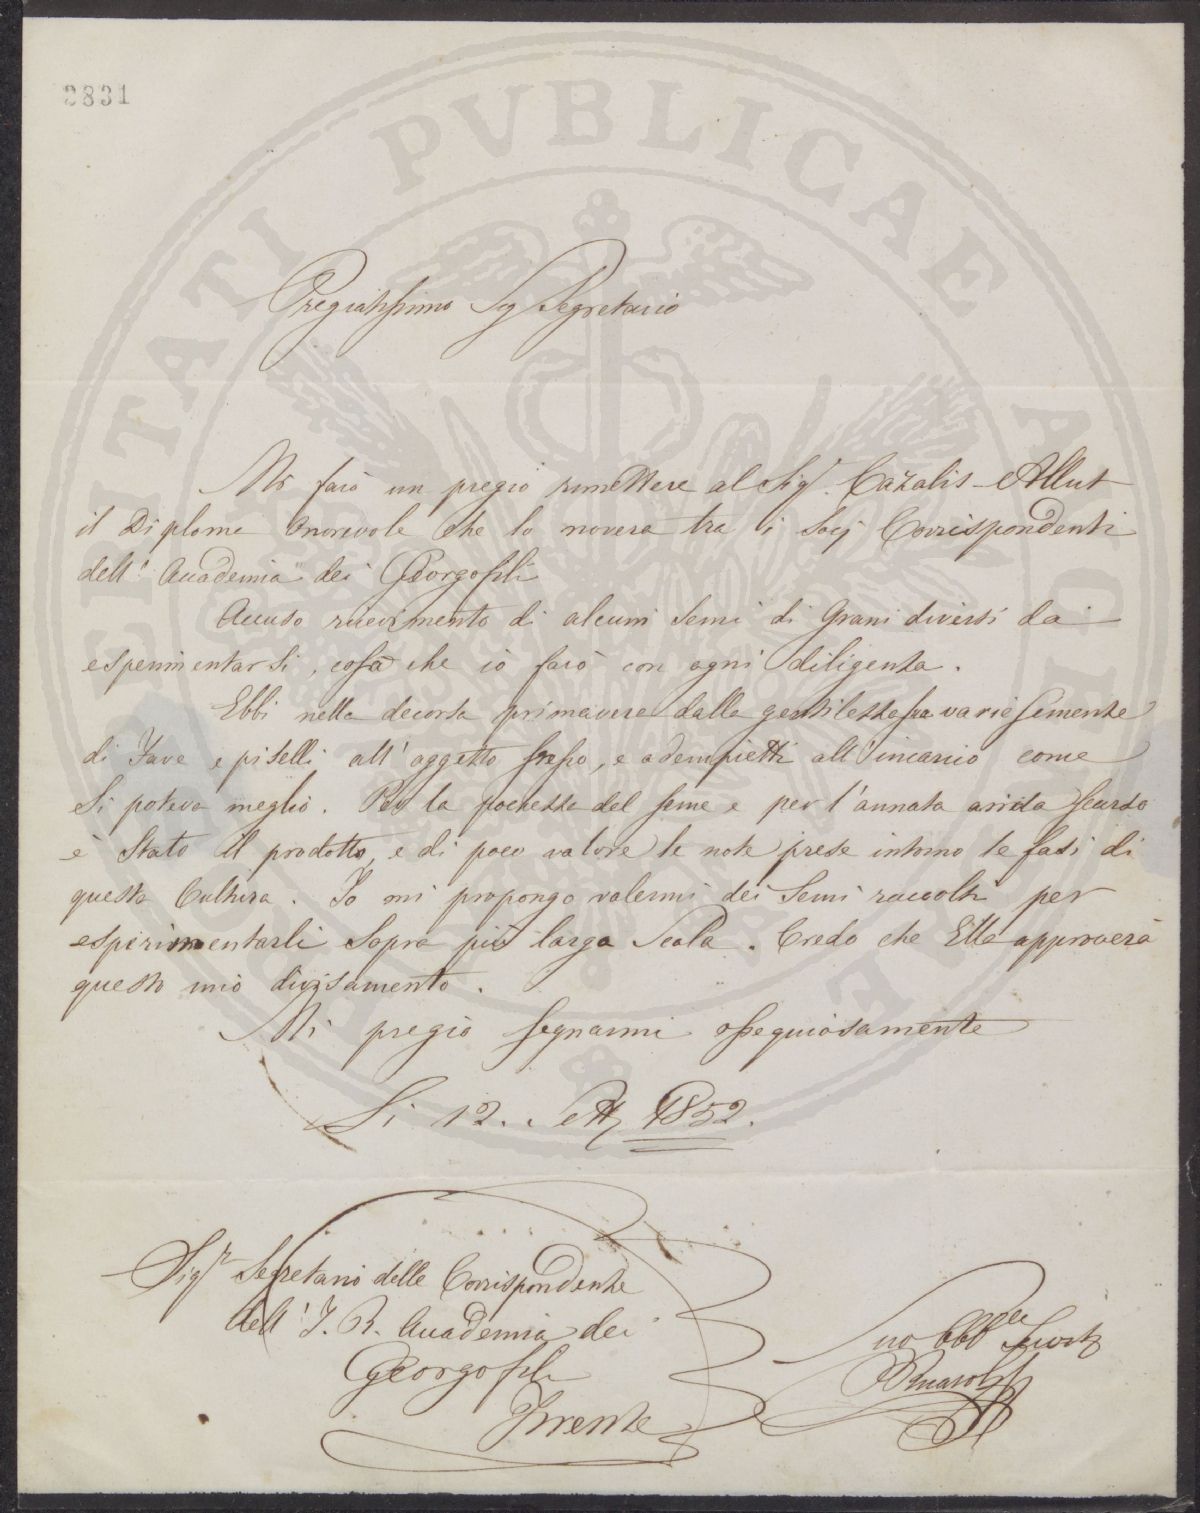 2831
PROSPERITATI PVBLICAE AVGENDAE
Pregiatissimo Sig Segretario
Mi farò un pregio rimettere al Sigr. Cazalis-Allut
il Diploma Onorevole che lo novera tra i Socj Corrispondenti
dell' Accademia dei Georgofili
Accuso ricevimento di alcuni semi di Grani diversi da
esperimentarsi, cosa che io farò con ogni diligenza.
Ebbi nella decorsa primavera dalla gentilezza sua varie semente
di Fave e piselli all' oggetto stesso, e adempietti all' incarico come
si poteva meglio. Per la pochezza del seme e per l'annata arida scarso
è stato il prodotto, e di poco valore le note prese intorno le fasi di
questa Cultura. Io mi propongo valermi dei semi raccolti per
esperimentarli sopra più larga Scala. Credo che Ella approverà
questo mio divisamento.
Mi pregio segnarmi ossequiosamente
Li 12. Sett 1852.
Sigr Segretario delle Corrispondenze
dell' I. R. Accademia dei
Georgofili
Firenze
Suo Obbl Servit